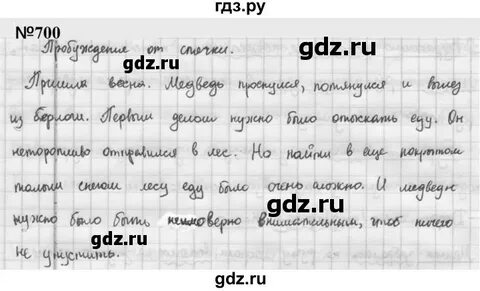 гдз.ру
№700
Пробуждение от спячки.
gdz.ru
gdz.ru
Пришла весна. Медведь проснулся, потянулся и вылез
из берлоги. Первым делом нужно было отыскать еду. Он
gdz.ru
gdz.ru
неторопливо отправился в лес. Но найти в еще покрытом
талым снегом лесу еду было очень сложно. И медведю
gdz.ru
нужно было быть неимоверно внимательным, чтоб ничего
не упустить.
gdz.ru
gdz.ru
gdz.ru